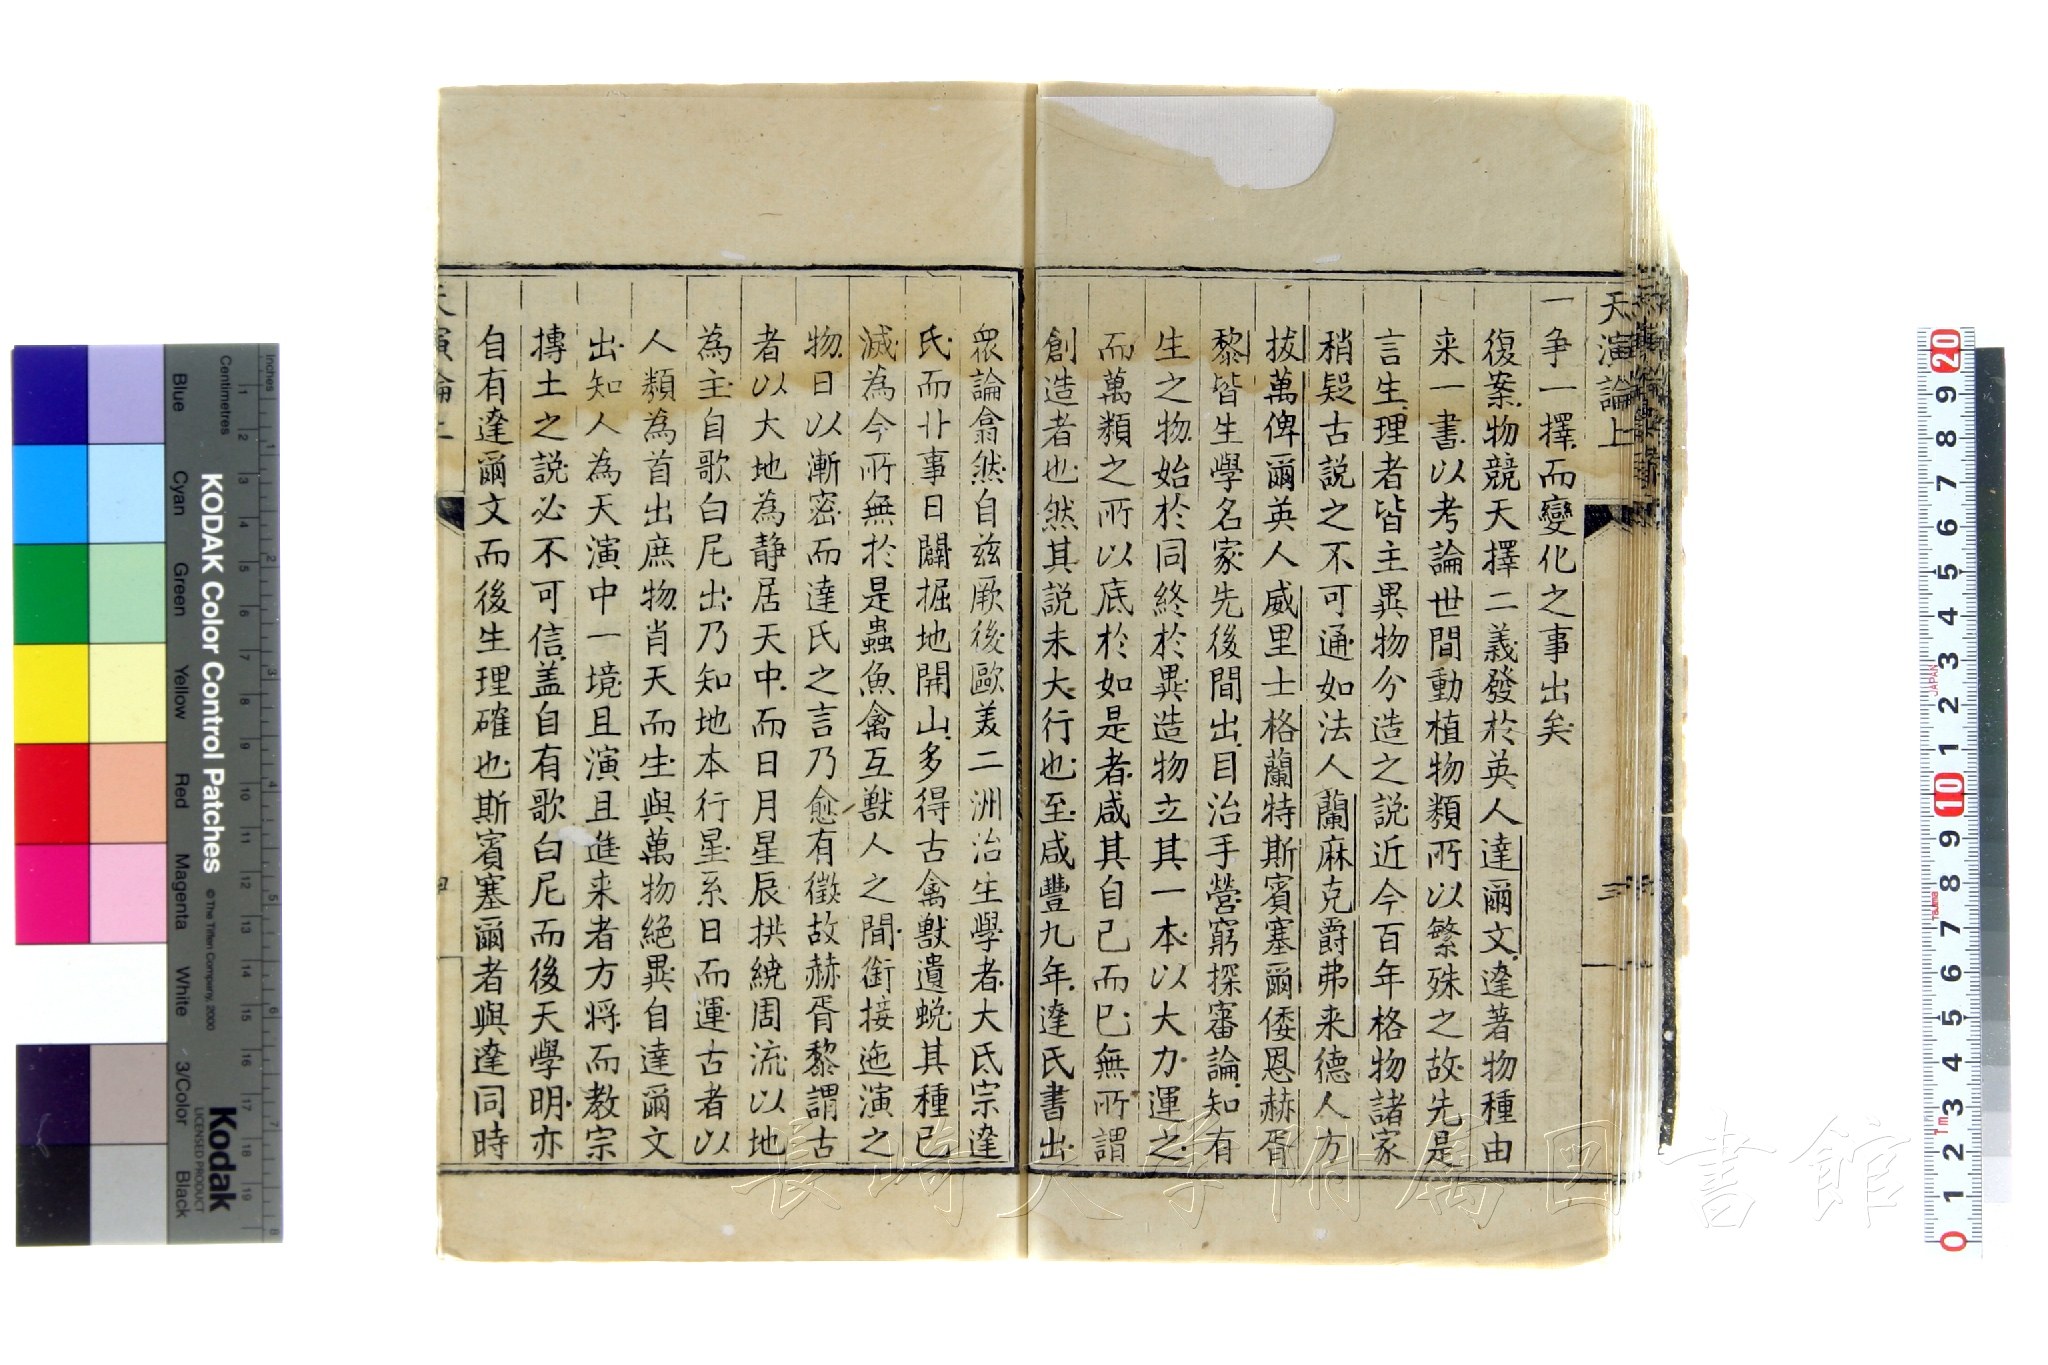 天演論上
三
一争一擇而變化之事出矣
復案物競天擇二義發於英人達爾文達著物種由
来一書以考論世間動植物類所以繁殊之故先是
言生理者皆主異物分造之說近今百年格物諸家
稍疑古說之不可通如法人蘭麻克爵弗来德人方
拔萬俾爾英人威里士格蘭特斯賓塞爾倭恩赫胥
黎皆生學名家先後間出目治手營窮探審論知有
生之物始於同終於異造物立其一本以大力運之
而萬類之所以底於如是者咸其自己而已無所謂
創造者也然其說未大行也至咸豐九年達氏書出
衆論翕然自兹厥後歐美二洲治生學者大氐宗達
氏而卝事日闢掘地開山多得古禽獸遺蜕其種已
滅為今所無於是蟲魚禽互獸人之間銜接迤演之
物日以漸密而達氏之言乃愈有徵故赫胥黎謂古
者以大地為静居天中而日月星辰拱繞周流以地
為主自歌白尼出乃知地本行星系日而運古者以
人類為首出庶物肖天而生與萬物絶異自達爾文
出知人為天演中一境且演且進来者方將而教宗
摶土之說必不可信蓋自有歌白尼而後天學明亦
自有達爾文而後生理確也斯賓塞爾者與達同時
長崎大学附属図書館
Inches
Centimetres
KODAK Color Control Patches
© The Tiffen Company, 2000
Kodak
LICENSED PRODUCT
Blue
Cyan
Green
Yellow
Red
Magenta
White
3/Color
Black
20
9
8
7
6
5
4
3
2
1
10
9
8
7
6
5
4
3
2
1
0
JAPAN
Tajima
Tm